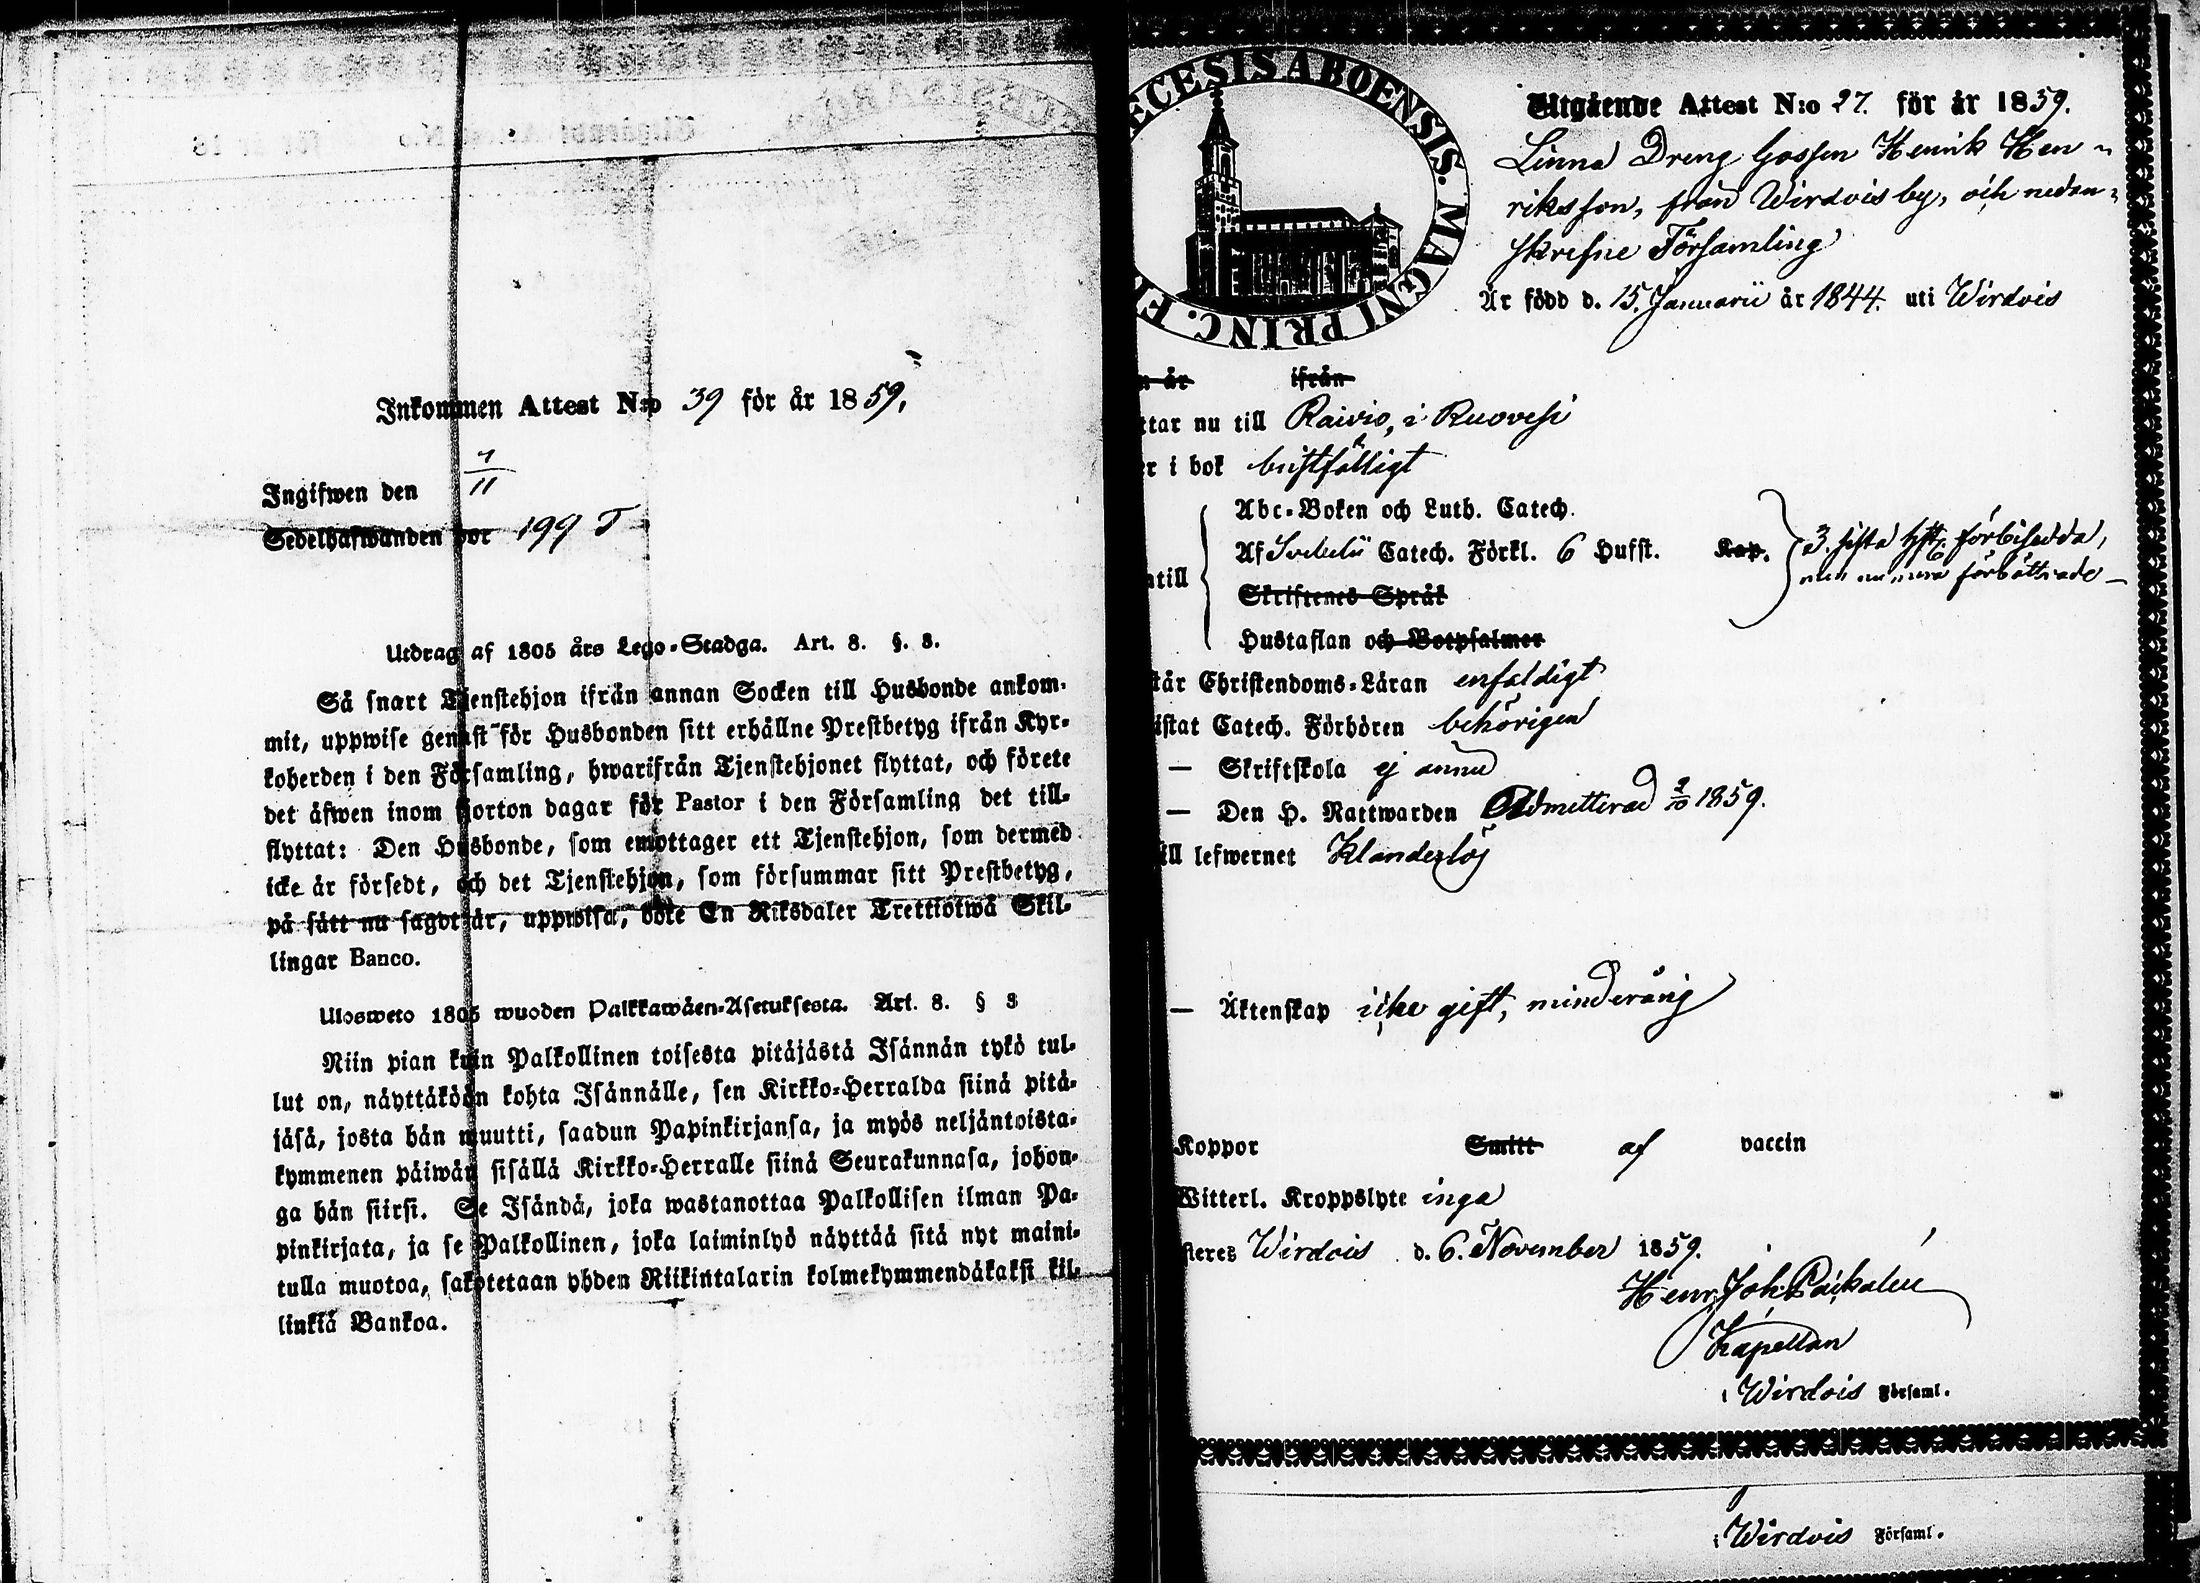 Inkommen Attest N:o 39 för år 1859,
Ingifwen den 7/11
Sedelhafwanden bor 199 T
Utdrag af 1805 års Lego-Stadga. Art. 8. §. 3.
Så snart Tjenstehjon ifrån annan Socken till Husbonde ankom-
mit, uppwise genast för Husbonden sitt erhållne Prestbetyg ifrån Kyr-
koherden i den Församling, hwarifrån Tjenstehjonet flyttat, och förete
det äfwen inom fjorton dagar för Pastor i den Församling det till-
flyttat: Den Husbonde, som emottager ett Tjenstehjon, som dermed
icke är försedt, och det Tjenstehjon, som försummar sitt Prestbetyg,
på sätt nu sagdt är, uppwisa, böte En Riksdaler Trettiotwå Skil-
lingar Banco.
Ulosweto 1805 wuoden Palkkawäen-Asetuksesta. Art. 8. § 3
Niin pian kuin Palkollinen toisesta pitäjästä Isännän tykö tul-
lut on, näyttäköön kohta Isännälle, sen Kirkko-Herralda siinä pitä-
jäsä, josta hän muutti, saadun Papinkirjansa, ja myös neljäntoista-
kymmenen päiwän sisällä Kirkko-Herralle siinä Seurakunnasa, johon-
ga hän siirsi. Se Isändä, joka wastanottaa Palkollisen ilman Pa-
pinkirjata, ja se Palkollinen, joka laiminlyö näyttää sitä nyt maini-
tulla muotoa, sakotetaan yhden Riikintalarin kolmekymmendäkaksi kil-
linkiä Bankoa.
ECESIS ABOENSIS. MAGNI PRINC. F
Utgående Attest N:o 27. för år 1859.
Linna Dreng Gossen Henrik Hen-
riksson, från Wirdois by, och nedan-
skrefne Församling
Är född d. 15. Januarii år 1844. uti Wirdois
n är ifrån
ttar nu till Raivio, i Ruovesi
er i bok bristfälligt
Abc-Boken och Luth. Catech.
Af Svebelii Catech. Förkl. 6 Hufst. Kap. 3. sista hft. förbisedda,
men numera förbättrade
ntill
Skriftenes Språk
Hustaflan och Botpsalmer
står Christendoms-Läran enfaldigt
istat Catech. Förhören behörigen
— Skriftskola ej ännu
— Den H. Nattwarden Admitterad 2/10 1859.
ill lefwernet Klanderlös
— Äktenskap icke gift, minderårig
Koppor Smitt af vaccin
Witterl. Kroppslyte inga
steres Wirdois d. 6. November 1859.
Henr. Joh. Päckalén
Kapellan
i Wirdois Församl.
i Wirdois Församl.